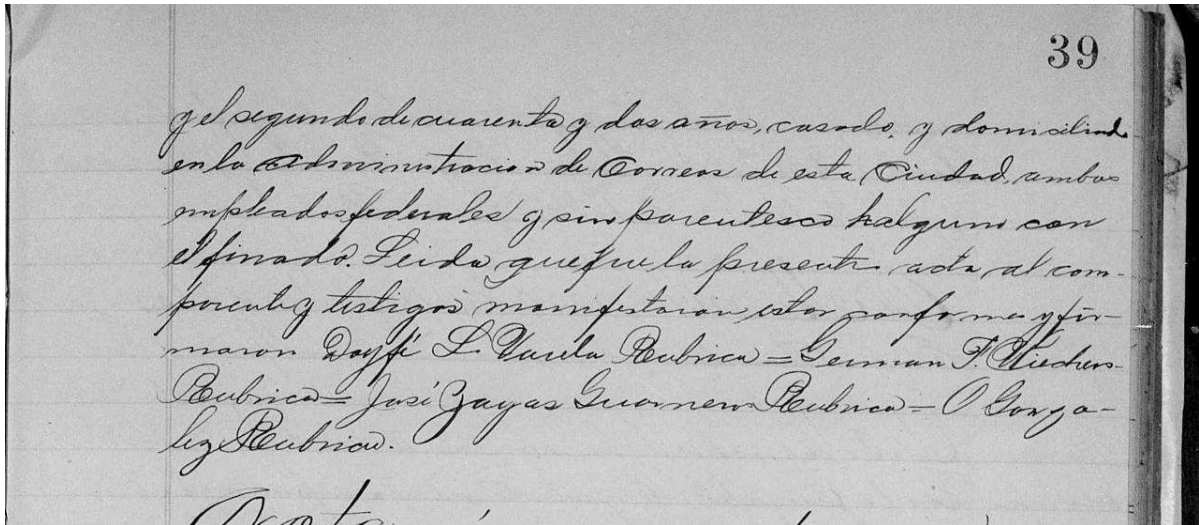 39
y el segundo de cuarenta y dos años, casado, y domiciliado
en la administracion de Correos de esta Ciudad, ambos
empleados federales y sin parentesco halguno con
el finado. Leida que fue la presente acta al com-
parente y testigos manifestaron estar conformes y fir-
maron Doyfé L. Varela Rubrica = German F. Wiechers
Rubrica = José Zayas Guarneros Rubrica = O Gonza-
lez Rubrica.